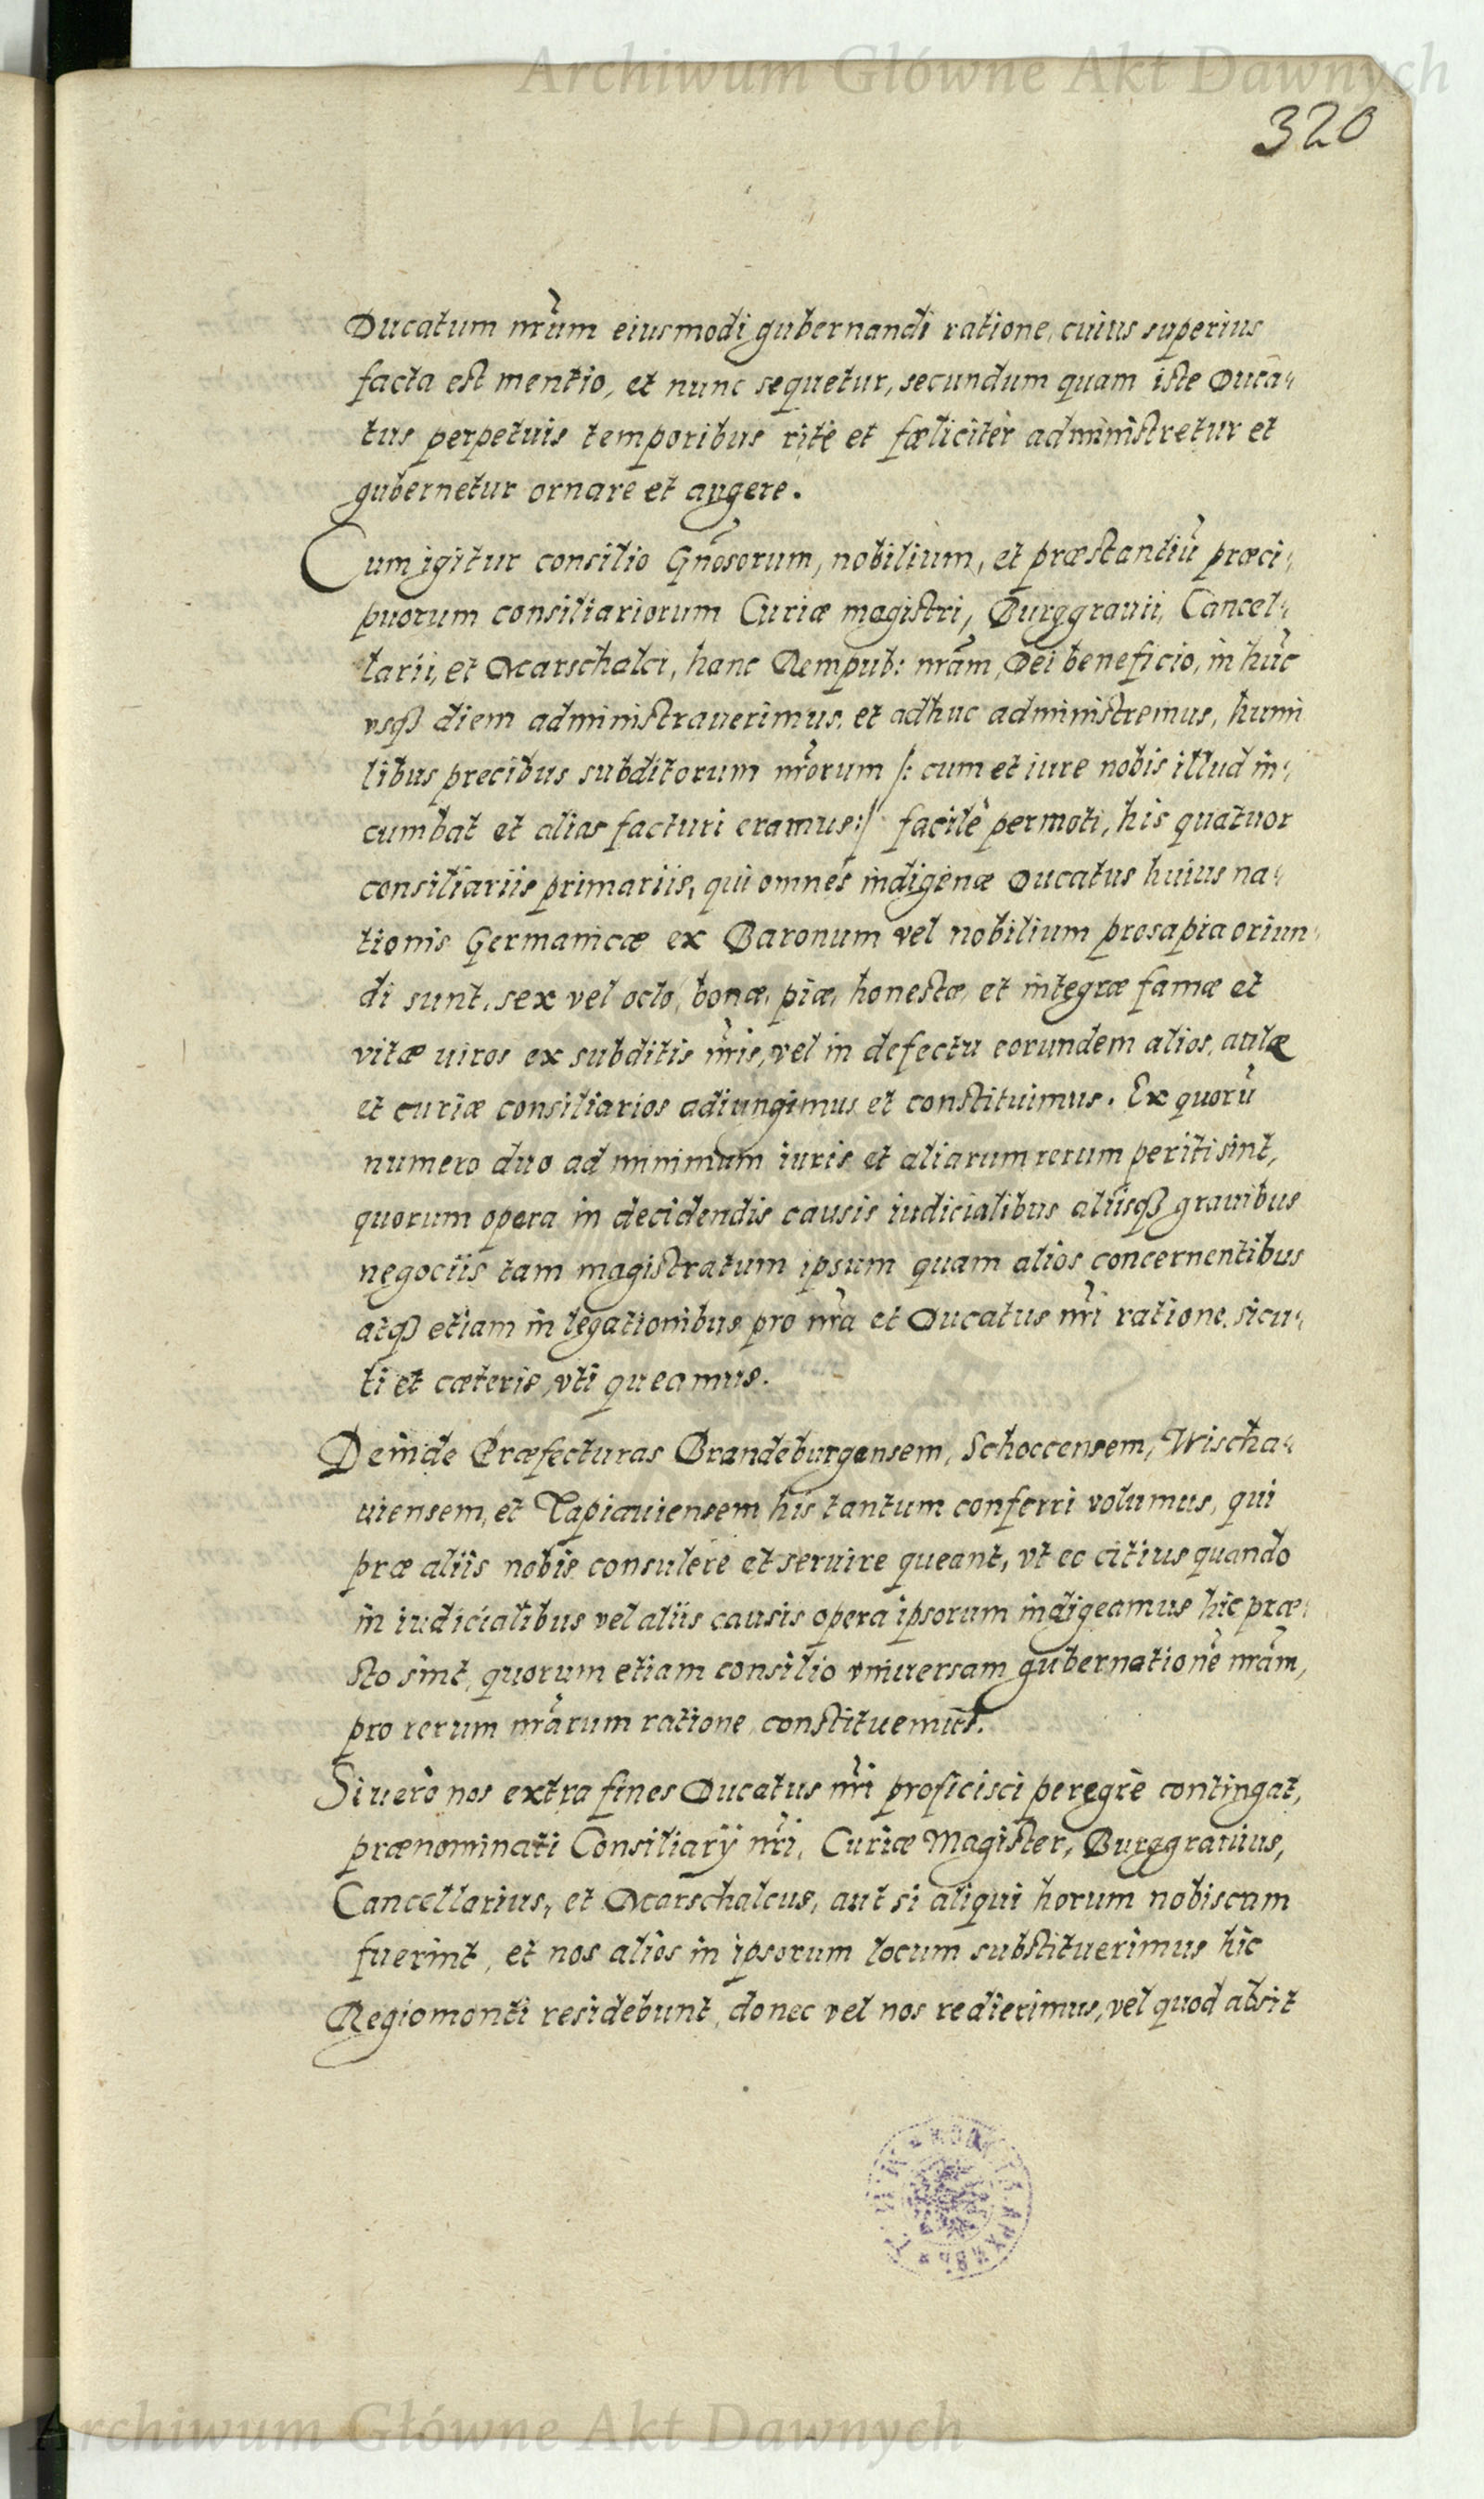 Archiwum Główne Akt Dawnych
320
Ducatum nr̃um eiusmodi gubernandi ratione, cuius superius
facta est mentio, et nunc sequetur, secundum quam iste Duca-
tus perpetuis temporibus ritè et fœlicitèr administretur et
gubernetur ornare et augere.
Cum igitur consilio Gñosorum, nobilium, et præstantiũ præci-
puorum consiliariorum Curiæ magistri, Burggrauii, Cancel-
larii, et Marschalci, hanc Rempub: nr̃am, Dei beneficio, in hũc
vsqȝ diem administrauerimus, et adhuc administremus, humi
libus precibus subditorum nr̃orum /: cum et iure nobis illud in-
cumbat et alias facturi eramus:/ facilè permoti, his quatuor
consiliariis primariis, qui omnes indigenæ Ducatus huius na-
tionis Germanicæ ex Baronum vel nobilium prosapia oriun-
di sunt, sex vel octo, bonæ, piæ, honestæ, et integræ famæ et
vitæ uiros ex subditis nr̃is, vel in defectu eorundem alios, aulæ
et curiæ consiliarios adiungimus et constituimus. Ex quorũ
numero duo ad minimum iuris et aliarum rerum periti sint,
quorum opera in decidendis causis iudicialibus aliisqȝ grauibus
negociis tam magistratum ipsum quam alios concernentibus
atqȝ etiam in legationibus pro nr̃a et Ducatus nr̃i ratione, sicu-
ti et cæteris, vti queamus.
Deinde Præfecturas Brandeburgensem, Schoccensem, Wischa-
uiensem, et Tapiauiensem his tantum conferri volumus, qui
præ aliis nobis consulere et seruire queant, vt eo citius quando
in iudicialibus vel aliis causis opera ipsorum indigeamus hic præ-
sto sint, quorum etiam consilio vniuersam gubernationẽ nr̃am,
pro rerum nr̃arum ratione, constituemus.
Si uero nos extra fines Ducatus nr̃i proficisci peregrè contingat,
prænominati Consiliarÿ nr̃i, Curiæ Magister, Burggrauius,
Cancellarius, et Marschalcus, aut si aliqui horum nobiscum
fuerint, et nos alios in ipsorum locum substituerimus hic
Regiomonti residebunt, donec vel nos redierimus, vel quod absit
Archiwum Główne Akt Dawnych